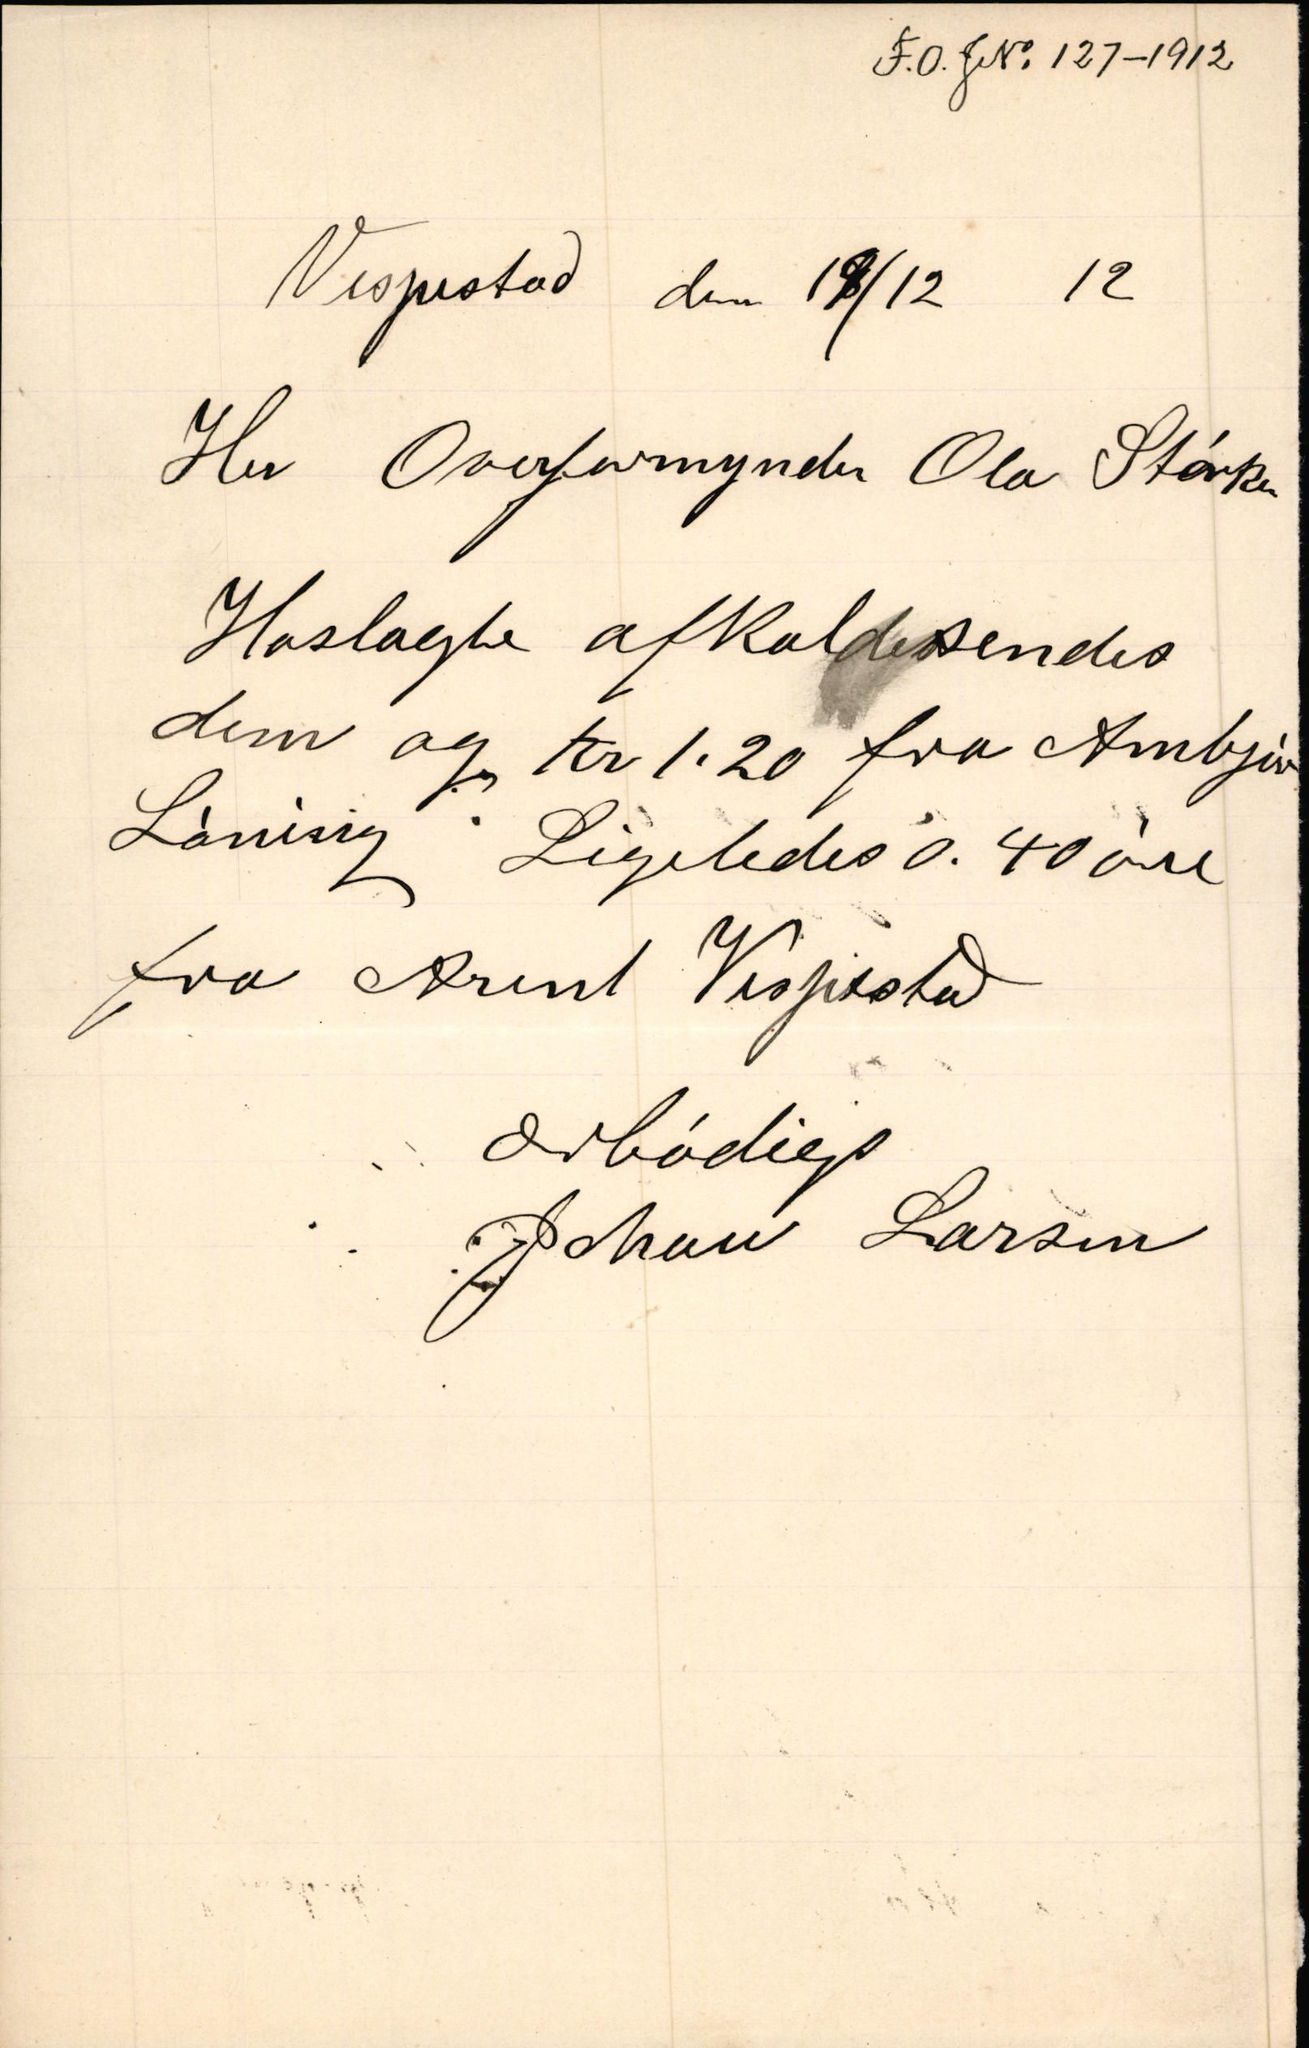 F.O. JNo. 127-1912
Vespestad den 18/12 12
Her Overformynder Ola Störksen
Hoslagte afkaldes sendes
dem og kr 1.20 fra Ambjör
Lönning Ligeledes 0.40 öre
fra Arent Vespestad
ærbödigs
Johan Larsen